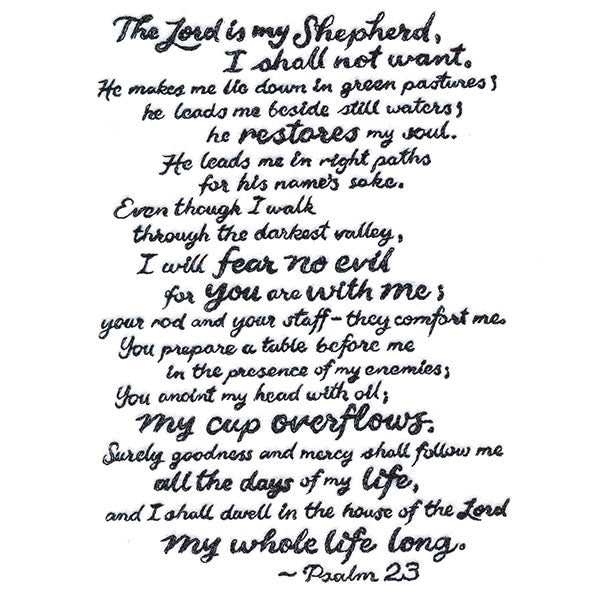 The Lord is my Shepherd,
I shall not want.
He makes me lie down in green pastures;
he leads me beside still waters;
he restores my soul.
He leads me in right paths
for his name's sake.
Even though I walk
through the darkest valley,
I will fear no evil
for you are with me;
your rod and your staff - they comfort me.
You prepare a table before me
in the presence of my enemies;
You anoint my head with oil;
my cup overflows.
Surely goodness and mercy shall follow me
all the days of my life,
and I shall dwell in the house of the Lord
my whole life long.
~ Psalm 23